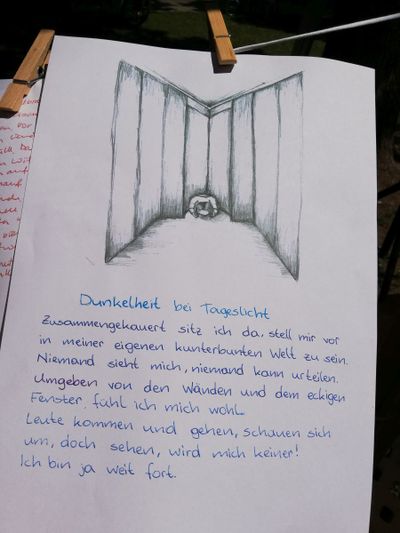 Dunkelheit bei Tageslicht
Zusammengekauert sitz ich da, stell mir vor
in meiner eigenen kunterbunten Welt zu sein.
Niemand sieht mich, niemand kann urteilen.
Umgeben von den Wänden und dem eckigen
Fenster, fühl ich mich wohl.
Leute kommen und gehen, schauen sich
um, doch sehen, wird mich keiner!
Ich bin ja weit fort.